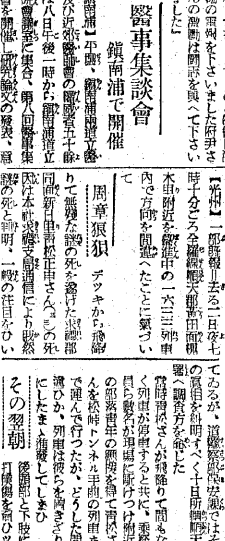 場の電報を下さいました府尹さ
の激励は闘志を興へて下さい
ました』
醫事集談會
鎭南浦で開催
【鎭南浦】平壤、鎭南浦兩道立醫
及び近郊醫師會の醫療者五十餘
八日午後一時から鎭南浦道立
を開催し研究論文の發表、意
【光州】一部既報＝去る二日夜七
時十分ごろ全羅線順天郡黄田面槐
木里附近を疾進中の一六三三列車
内で方向を間違へたことに氣づい
て
周章狼狽
デツキから飛降
りて無殘な謎の死を遂げた求禮郡
同面新日里青松正申さん＝の死
因は本社求禮支局通信により既然
謎の死と判明、一般の注目をひい
てゐるが、道警察部保安課ではそ
の眞相を糾明すべく十日所轄順天
署へ調査方を命じた
當時青松さんが飛降りて間もな
く列車が停車すると共に、乘務
員ら數名が現場に駈けつけ附近
の部落青年の應援を得て青松さ
んを松峙トンネル手前の列車ま
で運んで行つたが、どうした間
違ひか、列車は彼らを置きざり
にしたまゝ進發してしまひ
その翌朝
後頭部と下肢に
打撲傷を負ひツ